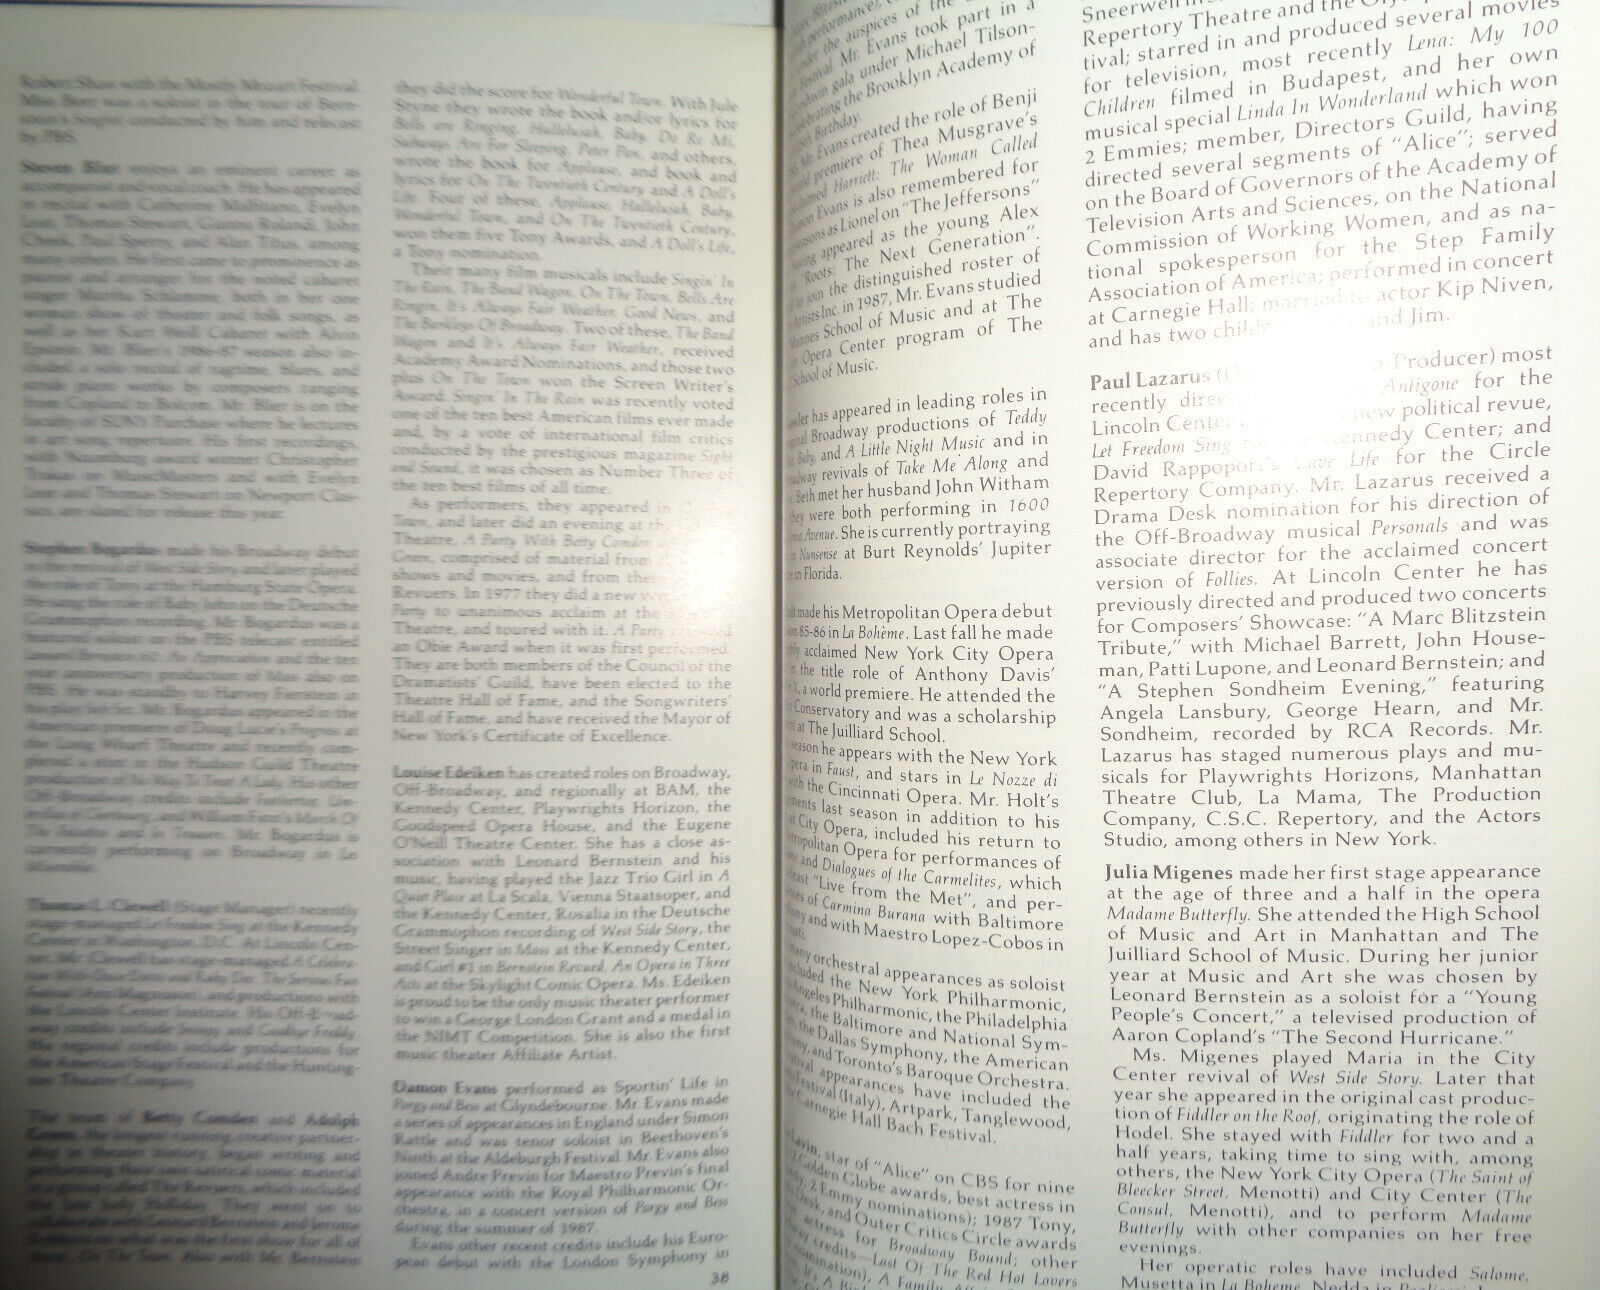 Robert Shaw with the Mostly Mozart Festival.
Miss Beer was a soloist in the tour of Bern-
stein's Songfest conducted by him and telecast
by PBS.
Steven Blier enjoys an eminent career as
accompanist and vocal coach. He has appeared
in recital with Catherine Malfitano, Evelyn
Lear, Thomas Stewart, Gianna Rolandi, John
Cheek, Paul Sperry, and Alan Titus, among
many others. He first came to prominence as
pianist and arranger for the noted cabaret
singer Martha Schlamme, both in her one
woman show of theater and folk songs, as
well as her Kurt Weill Cabaret with Alvin
Epstein. Mr. Blier's 1986-87 season also in-
cluded a solo recital of ragtime, blues, and
stride piano works by composers ranging
from Copland to Bolcom. Mr. Blier is on the
faculty of SUNY Purchase where he lectures
in art song repertoire. His first recordings,
with Naumburg award winner Christopher
Trakas on MusicMasters and with Evelyn
Lear and Thomas Stewart on Newport Clas-
sics, are slated for release this year.
Stephen Bogardus made his Broadway debut
in the revival of West Side Story and later played
the role of Tony at the Hamburg State Opera.
He sang the role of Baby John on the Deutsche
Grammophon recording. Mr. Bogardus was a
featured soloist on the PBS telecast entitled
and the ten
year anniversary production of Mass also on
PBS. He was standby to Harvey Fierstein in
his play Safe Sex. Mr. Bogardus appeared in the
American premiere of Doug Lucie's Progress at
the Long Wharf Theatre and recently com-
pleted a stint in the Hudson Guild Theatre
production of No Way To Treat A Lady. His other
Off-Broadway credits include
and William Finn's March Of
The Falsettos and In Trousers. Mr. Bogardus is
currently performing on Broadway in Les
Miserables.
Thomas L. Clewell (Stage Manager) recently
stage-managed Let Freedom Sing at the Kennedy
Center in Washington, D.C. At Lincoln Cen-
ter, Mr. Clewell has stage-managed A Celebra-
and productions with
the Lincoln Center Institute. His Off-Broad-
way credits include Snoopy and Goodbye Freddy.
His regional credits include productions for
the American Stage Festival and the Hunting-
ton Theatre Company.
The team of Betty Comden and Adolph
Green, the longest running creative partner-
ship in theater history, began writing and
performing their own satirical comic material
in a group called The Revuers, which included
the late Judy Holliday. They went on to
collaborate with Leonard Bernstein and Jerome
Robbins on what was the first show for all of
them, On The Town. Also with Mr. Bernstein
they did the score for Wonderful Town. With Jule
Styne they wrote the book and/or lyrics for
Bells are Ringing, Hallelujah, Baby, Do Re Mi,
Subways Are For Sleeping, Peter Pan, and others,
wrote the book for Applause, and book and
lyrics for On The Twentieth Century and A Doll's
Life. Four of these, Applause, Hallelujah, Baby,
Wonderful Town, and On The Twentieth Century,
won them five Tony Awards, and A Doll's Life,
a Tony nomination.
Their many film musicals include Singin' In
The Rain, The Band Wagon, On The Town, Bells Are
Ringin, It's Always Fair Weather, Good News, and
The Barkleys Of Broadway. Two of these, The Band
Wagon and It's Always Fair Weather, received
Academy Award Nominations, and those two
plus On The Town won the Screen Writer's
Award. Singin' In The Rain was recently voted
one of the ten best American films ever made
and, by a vote of international film critics
conducted by the prestigious magazine Sight
and Sound, it was chosen as Number Three of
the ten best films of all time.
As performers, they appeared in
Town, and later did an evening at the
Theatre, A Party With Betty Comden
Green, comprised of material from
shows and movies, and from their
Revuers. In 1977 they did a new
Party to unanimous acclaim at the
Theatre, and toured with it. A Party received
an Obie Award when it was first performed.
They are both members of the Council of the
Dramatists' Guild, have been elected to the
Theatre Hall of Fame, and the Songwriters'
Hall of Fame, and have received the Mayor of
New York's Certificate of Excellence.
Louise Edeiken has created roles on Broadway,
Off-Broadway, and regionally at BAM, the
Kennedy Center, Playwrights Horizon, the
Goodspeed Opera House, and the Eugene
O'Neill Theatre Center. She has a close as-
sociation with Leonard Bernstein and his
music, having played the Jazz Trio Girl in A
Quiet Place at La Scala, Vienna Staatsoper, and
the Kennedy Center, Rosalia in the Deutsche
Grammophon recording of West Side Story, the
Street Singer in Mass at the Kennedy Center,
and Girl #1 in Bernstein Revued, An Opera in Three
Acts at the Skylight Comic Opera. Ms. Edeiken
is proud to be the only music theater performer
to win a George London Grant and a medal in
the NIMT Competition. She is also the first
music theater Affiliate Artist.
Damon Evans performed as Sportin' Life in
Porgy and Bess at Glyndebourne. Mr. Evans made
a series of appearances in England under Simon
Rattle and was tenor soloist in Beethoven's
Ninth at the Aldeburgh Festival. Mr. Evans also
joined Andre Previn for Maestro Previn's final
appearance with the Royal Philharmonic Or-
chestra, in a concert version of Porgy and Bess
during the summer of 1987.
Evans other recent credits include his Euro-
pean debut with the London Symphony in
38
performance),
the auspices of the
Festival. Mr. Evans took part in a
gala under Michael Tilson-
the Brooklyn Academy of
Birthday.
Evans created the role of Benji
premiere of Thea Musgrave's
Harriett: The Woman Called
Evans is also remembered for
as Lionel on "The Jeffersons"
appeared as the young Alex
"Roots: The Next Generation".
join the distinguished roster of
Artists Inc. in 1987, Mr. Evans studied
School of Music and at The
Opera Center program of The
School of Music.
has appeared in leading roles in
Broadway productions of Teddy
Baby, and A Little Night Music and in
revivals of Take Me Along and
Beth met her husband John Witham
they were both performing in 1600
Avenue. She is currently portraying
in Nunsense at Burt Reynolds' Jupiter
in Florida.
made his Metropolitan Opera debut
85-86 in La Bohème. Last fall he made
acclaimed New York City Opera
in the title role of Anthony Davis'
X, a world premiere. He attended the
Conservatory and was a scholarship
at The Juilliard School.
season he appears with the New York
Opera in Faust, and stars in Le Nozze di
with the Cincinnati Opera. Mr. Holt's
last season in addition to his
at City Opera, included his return to
Opera for performances of
and Dialogues of the Carmelites, which
"Live from the Met", and per-
of Carmina Burana with Baltimore
and with Maestro Lopez-Cobos in
many orchestral appearances as soloist
included the New York Philharmonic,
Angeles Philharmonic, the Philadelphia
the Baltimore and National Sym-
the Dallas Symphony, the American
and Toronto's Baroque Orchestra.
appearances have included the
Festival (Italy), Artpark, Tanglewood,
Carnegie Hall Bach Festival.
Lavin, star of "Alice" on CBS for nine
Golden Globe awards, best actress in
2 Emmy nominations); 1987 Tony,
Desk, and Outer Critics Circle awards
actress for Broadway Bound; other
credits—Last Of The Red Hot Lovers
nomination), A Family
Sneerwell
Repertory Theatre and the
tival; starred in and produced several movies
for television, most recently Lena: My 100
Children filmed in Budapest, and her own
musical special Linda In Wonderland which won
2 Emmies; member, Directors Guild, having
directed several segments of "Alice"; served
on the Board of Governors of the Academy of
Television Arts and Sciences, on the National
Commission of Working Women, and as na-
tional spokesperson for the Step Family
Association of America; performed in concert
at Carnegie Hall; married to actor Kip Niven,
and has two and Jim.
Paul Lazarus Producer) most
recently Antigone for the
Lincoln Center new political revue,
Let Freedom Sing Kennedy Center; and
David Rappoport's Cave Life for the Circle
Repertory Company. Mr. Lazarus received a
Drama Desk nomination for his direction of
the Off-Broadway musical Personals and was
associate director for the acclaimed concert
version of Follies. At Lincoln Center he has
previously directed and produced two concerts
for Composers' Showcase: "A Marc Blitzstein
Tribute," with Michael Barrett, John House-
man, Patti Lupone, and Leonard Bernstein; and
"A Stephen Sondheim Evening," featuring
Angela Lansbury, George Hearn, and Mr.
Sondheim, recorded by RCA Records. Mr.
Lazarus has staged numerous plays and mu-
sicals for Playwrights Horizons, Manhattan
Theatre Club, La Mama, The Production
Company, C.S.C. Repertory, and the Actors
Studio, among others in New York.
Julia Migenes made her first stage appearance
at the age of three and a half in the opera
Madame Butterfly. She attended the High School
of Music and Art in Manhattan and The
Juilliard School of Music. During her junior
year at Music and Art she was chosen by
Leonard Bernstein as a soloist for a "Young
People's Concert," a televised production of
Aaron Copland's "The Second Hurricane."
Ms. Migenes played Maria in the City
Center revival of West Side Story. Later that
year she appeared in the original cast produc-
tion of Fiddler on the Roof, originating the role of
Hodel. She stayed with Fiddler for two and a
half years, taking time to sing with, among
others, the New York City Opera (The Saint of
Bleecker Street, Menotti) and City Center (The
Consul, Menotti), and to perform Madame
Butterfly with other companies on her free
evenings.
Her operatic roles have included Salome,
Musetta in La Boheme, Nedda in